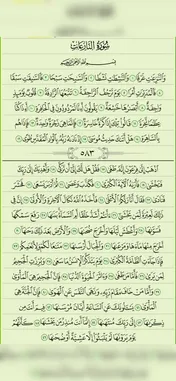 سُورَةُ النَّازِعَاتِ
بِسْمِ اللَّهِ الرَّحْمَٰنِ الرَّحِيمِ
وَالنَّازِعَاتِ غَرْقًا ١ وَالنَّاشِطَاتِ نَشْطًا ٢ وَالسَّابِحَاتِ سَبْحًا ٣ فَالسَّابِقَاتِ سَبْقًا
٤ فَالْمُدَبِّرَاتِ أَمْرًا ٥ يَوْمَ تَرْجُفُ الرَّاجِفَةُ ٦ تَتْبَعُهَا الرَّادِفَةُ ٧ قُلُوبٌ يَوْمَئِذٍ
وَاجِفَةٌ ٨ أَبْصَارُهَا خَاشِعَةٌ ٩ يَقُولُونَ أَإِنَّا لَمَرْدُودُونَ فِي الْحَافِرَةِ ١٠ أَإِذَا كُنَّا
عِظَامًا نَّخِرَةً ١١ قَالُوا تِلْكَ إِذًا كَرَّةٌ خَاسِرَةٌ ١٢ فَإِنَّمَا هِيَ زَجْرَةٌ وَاحِدَةٌ ١٣ فَإِذَا هُم
بِالسَّاهِرَةِ ١٤ هَلْ أَتَاكَ حَدِيثُ مُوسَىٰ ١٥ إِذْ نَادَاهُ رَبُّهُ بِالْوَادِ الْمُقَدَّسِ طُوًى ١٦
٥٨٣
اذْهَبْ إِلَىٰ فِرْعَوْنَ إِنَّهُ طَغَىٰ ١٧ فَقُلْ هَل لَّكَ إِلَىٰ أَن تَزَكَّىٰ ١٨ وَأَهْدِيَكَ إِلَىٰ رَبِّكَ
فَتَخْشَىٰ ١٩ فَأَرَاهُ الْآيَةَ الْكُبْرَىٰ ٢٠ فَكَذَّبَ وَعَصَىٰ ٢١ ثُمَّ أَدْبَرَ يَسْعَىٰ ٢٢ فَحَشَرَ
فَنَادَىٰ ٢٣ فَقَالَ أَنَا رَبُّكُمُ الْأَعْلَىٰ ٢٤ فَأَخَذَهُ اللَّهُ نَكَالَ الْآخِرَةِ وَالْأُولَىٰ ٢٥ إِنَّ فِي
ذَٰلِكَ لَعِبْرَةً لِّمَن يَخْشَىٰ ٢٦ أَأَنتُمْ أَشَدُّ خَلْقًا أَمِ السَّمَاءُ بَنَاهَا ٢٧ رَفَعَ سَمْكَهَا
فَسَوَّاهَا ٢٨ وَأَغْطَشَ لَيْلَهَا وَأَخْرَجَ ضُحَاهَا ٢٩ وَالْأَرْضَ بَعْدَ ذَٰلِكَ دَحَاهَا ٣٠
أَخْرَجَ مِنْهَا مَاءَهَا وَمَرْعَاهَا ٣١ وَالْجِبَالَ أَرْسَاهَا ٣٢ مَتَاعًا لَّكُمْ وَلِأَنْعَامِكُمْ ٣٣
فَإِذَا جَاءَتِ الطَّامَّةُ الْكُبْرَىٰ ٣٤ يَوْمَ يَتَذَكَّرُ الْإِنسَانُ مَا سَعَىٰ ٣٥ وَبُرِّزَتِ الْجَحِيمُ
لِمَن يَرَىٰ ٣٦ فَأَمَّا مَن طَغَىٰ ٣٧ وَآثَرَ الْحَيَاةَ الدُّنْيَا ٣٨ فَإِنَّ الْجَحِيمَ هِيَ الْمَأْوَىٰ
٣٩ وَأَمَّا مَنْ خَافَ مَقَامَ رَبِّهِ وَنَهَى النَّفْسَ عَنِ الْهَوَىٰ ٤٠ فَإِنَّ الْجَنَّةَ هِيَ
الْمَأْوَىٰ ٤١ يَسْأَلُونَكَ عَنِ السَّاعَةِ أَيَّانَ مُرْسَاهَا ٤٢ فِيمَ أَنتَ مِن
ذِكْرَاهَا ٤٣ إِلَىٰ رَبِّكَ مُنتَهَاهَا ٤٤ إِنَّمَا أَنتَ مُنذِرُ مَن يَخْشَاهَا ٤٥ كَأَنَّهُمْ
يَوْمَ يَرَوْنَهَا لَمْ يَلْبَثُوا إِلَّا عَشِيَّةً أَوْ ضُحَاهَا ٤٦